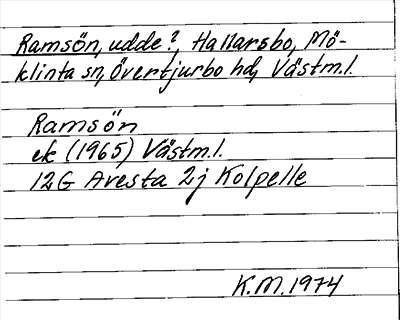 Ramsön, udde?, Hallarsbo, Mö-
klinta sn, Övertjurbo hd, Västm.l.
Ramsön
ek (1965) Västm.l.
12G Avesta 2j Kolpelle
K.M. 1974